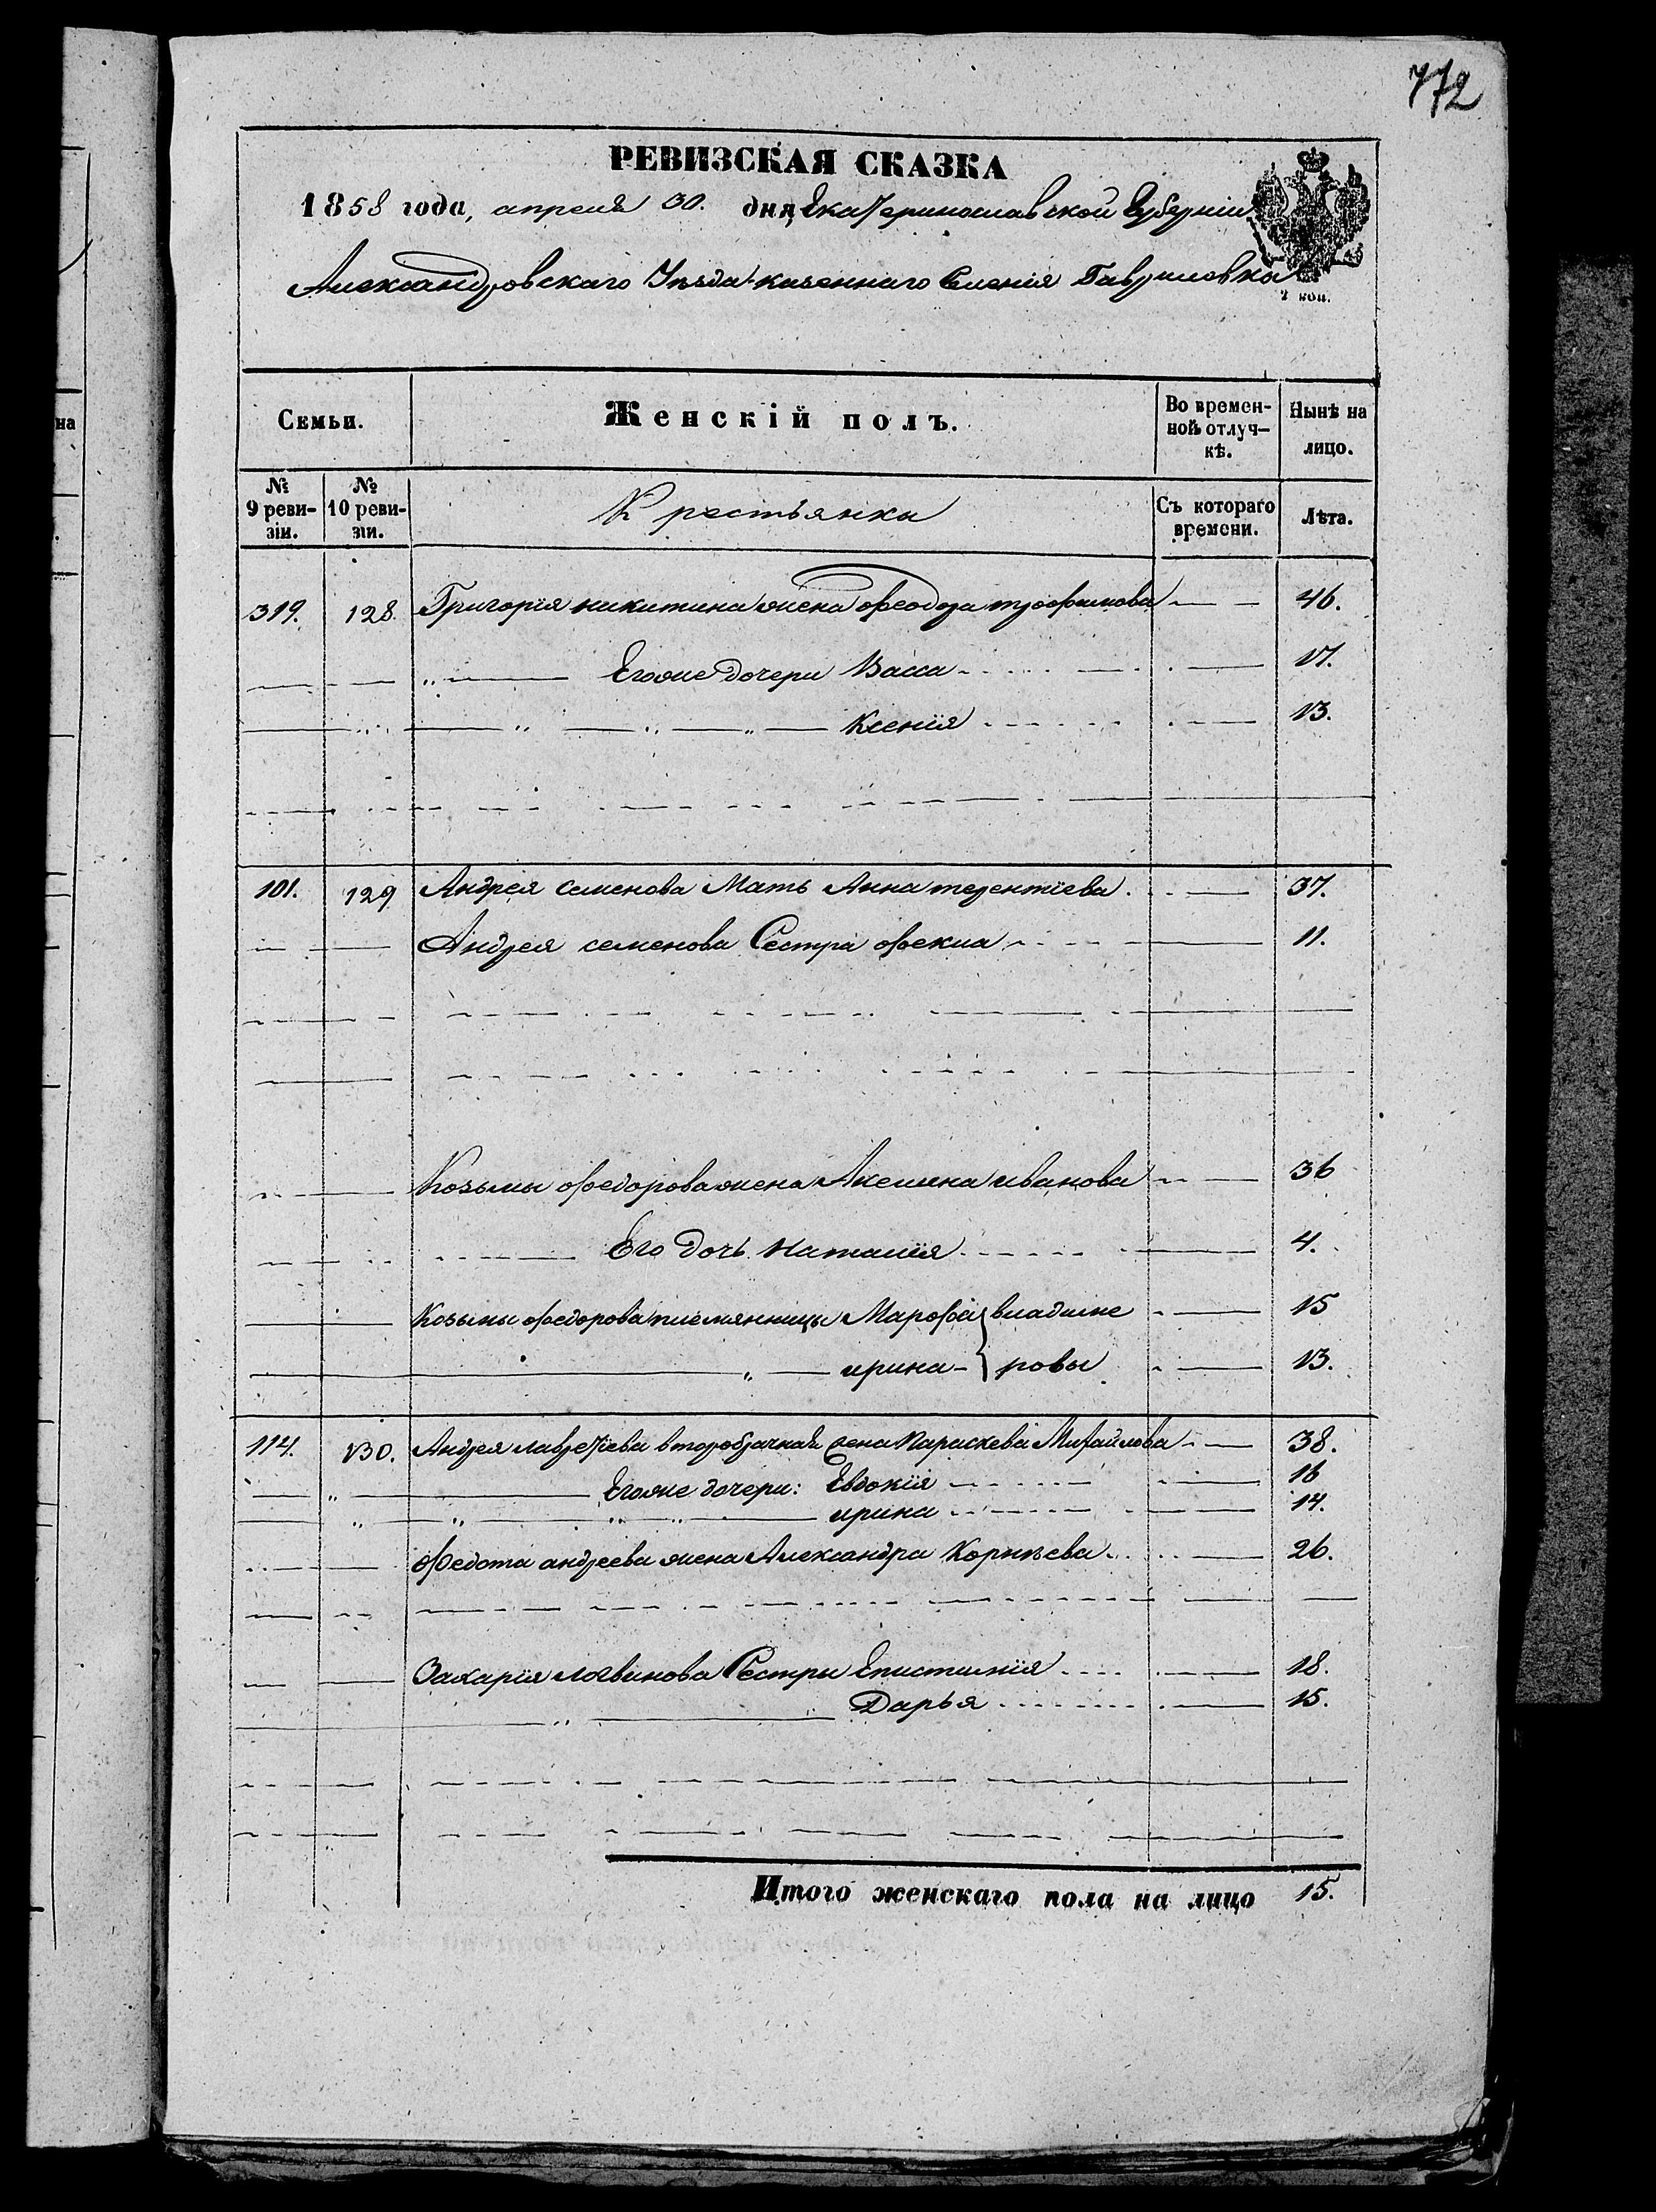 772
РЕВИЗСКАЯ СКАЗКА
1858 года, апреля 30. дня, Екатеринославской Губерніи
Александровскаго Уѣзда казеннаго Селенія Гавриловка
2 коп.
на
Семьи. Женскій полъ. Во временной отлучкѣ. Нынѣ на лицо.
№ 9 ревизіи. № 10 ревизіи. Крестьянки Съ котораго времени. Лѣта.
319. 128. Григорія никитина жена Феодора трофимова 46.
Егоже дочери Васса 17.
Ксенія 13.
101. 129 Андрея семенова Мать Анна терентіева. 37.
Андрея семенова Сестра Фекла 11.
Козьмы Федорова жена Акелина иванова 36
Его дочь Наталія 4.
Козьмы Федорова племянницы Марфа владиме 15
ирина ровы 13.
114. 130. Андрея лаврентіева второбрачная жена Параскева Михайлова 38.
Егоже дочери: Евдокія 16
ирина 14.
Федота андреева жена Александра Корнѣева 26.
Захарія логвинова Сестры Епистимія 18.
Дарья 15.
Итого женскаго пола на лицо 15.